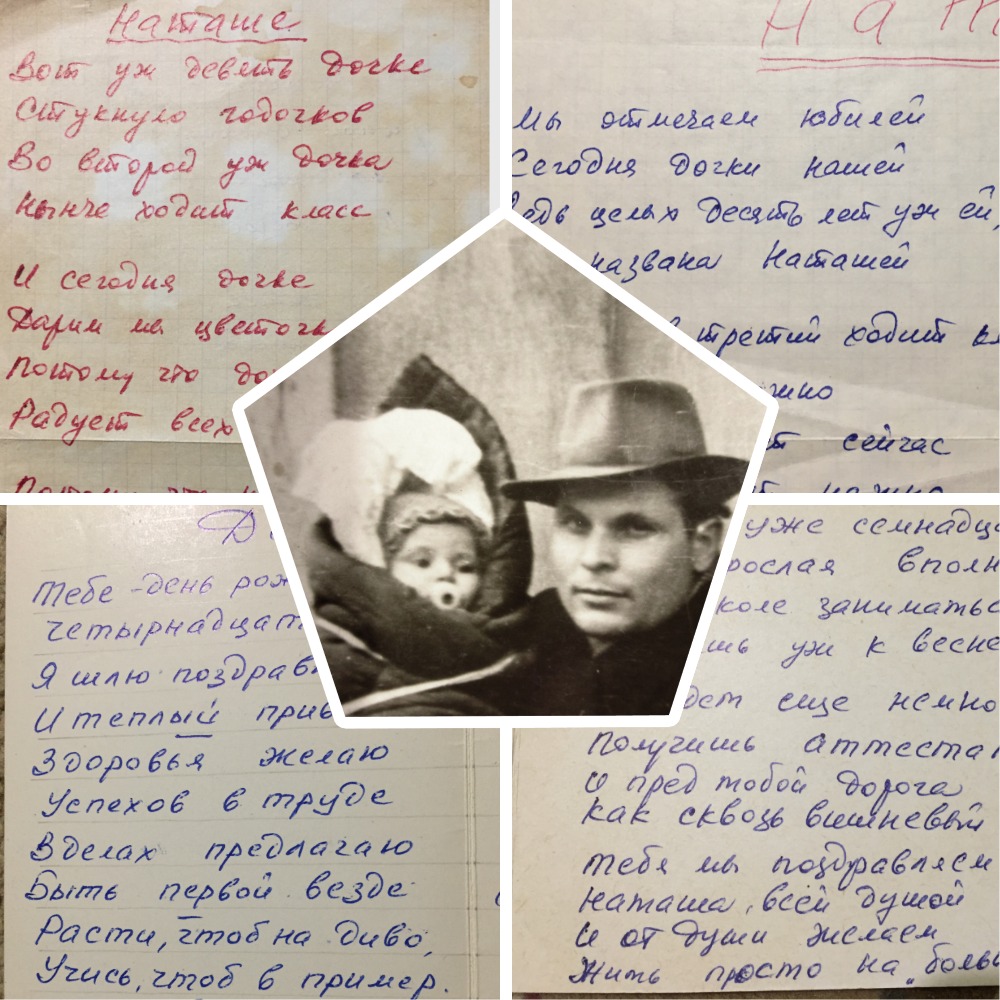 Наташе
Вот уж девять дочке
Стукнуло годочков
Во второй уж дочка
Нынче ходит класс
И сегодня дочке
Дарим мы цветочк
Потому что до
Радует всех
Потому что н
Н а т
Мы отмечаем юбилей
Сегодня дочки нашей
Ведь целых десять лет уж ей,
названа Наташей
в третий ходит кл
жно
т сейчас
нужно
Д
Тебе - день рож
четырнадцат
Я шлю поздрав
И теплый прив
Здоровья желаю
Успехов в труде
В делах предлагаю
Быть первой везде
Расти, чтоб на диво,
Учись, чтоб в пример.
уже семнадца
рослая вполн
коле заниматьс
шь уж к весне
дет еще немно
Получишь аттестат
И пред тобой дорога
Как сквозь вишневый
Тебя мы поздравляем
Наташа, всей душой
И от души желаем
Жить просто на „больш